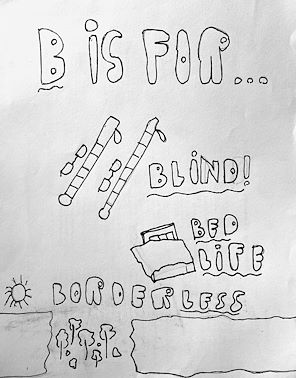 B IS FOR...
BLIND!
BED
LIFE
BORDERLESS